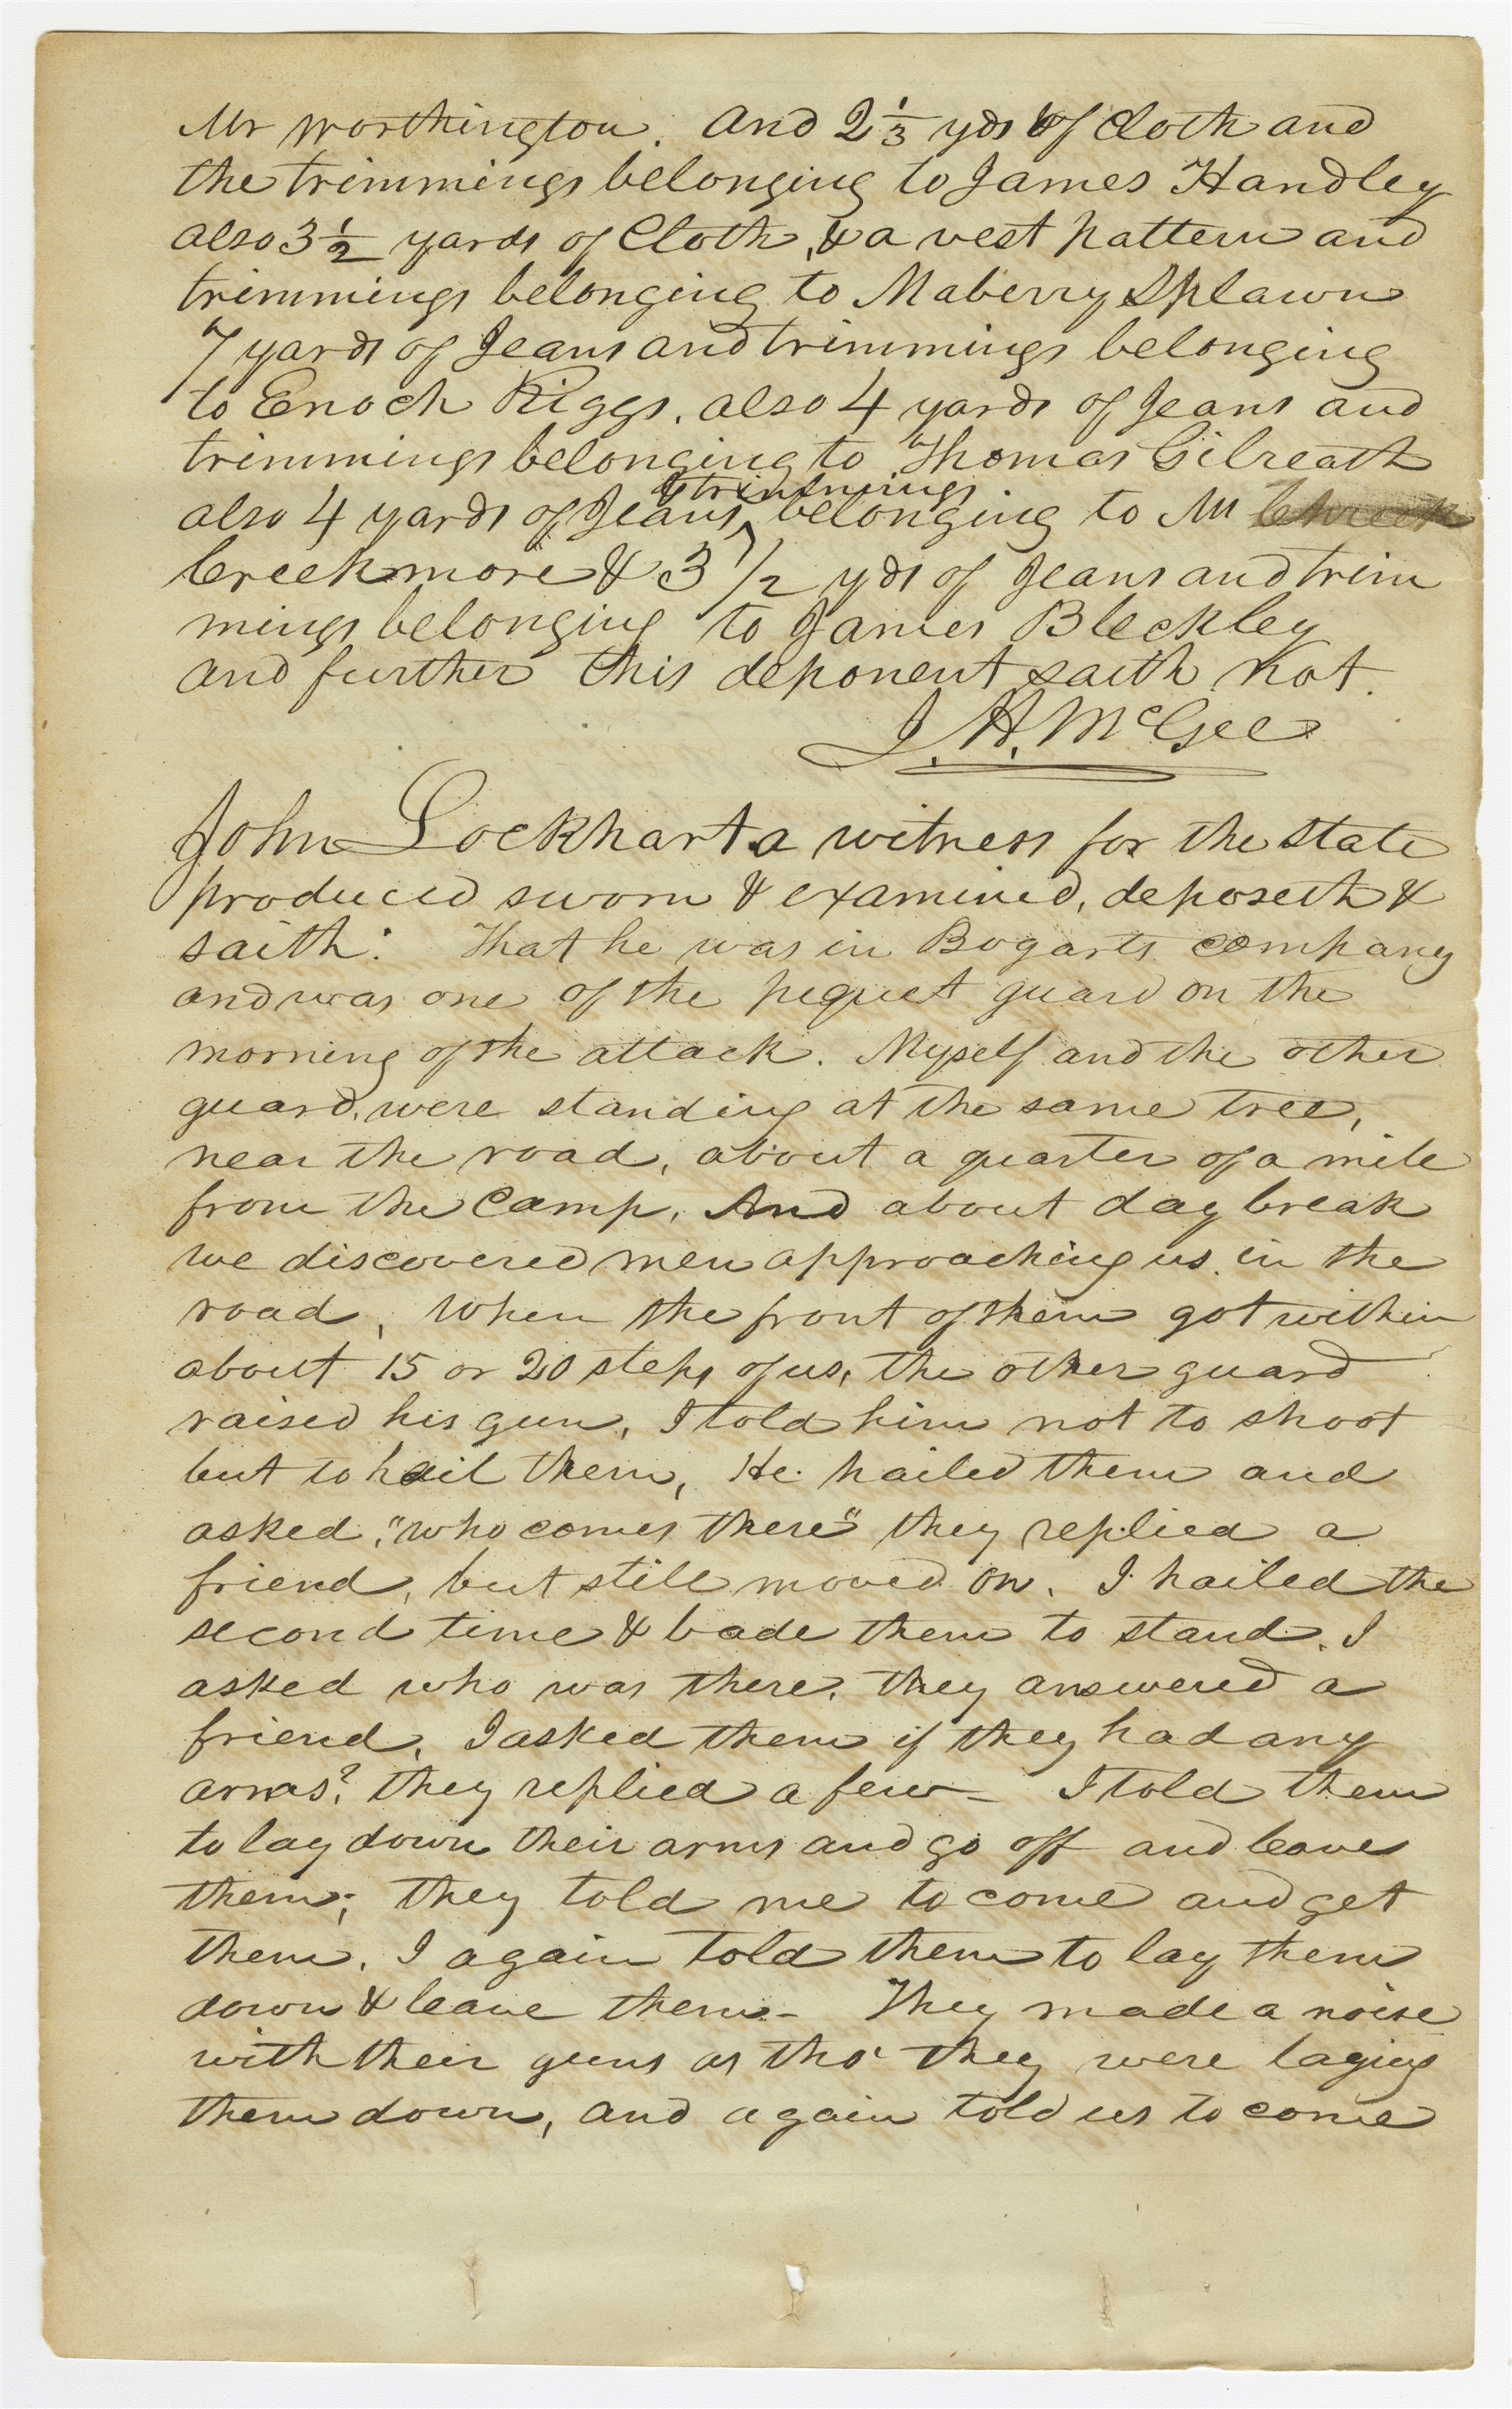 Mr Worthington. And 2 1/3 yds of Cloth and
the trimmings belonging to James Handley
also 3 1/2 yards of Cloth, & a vest pattern and
trimmings belonging to Maberry Splawn
7 yards of Jeans and trimmings belonging
to Enoch Riggs. also 4 yards of Jeans and
trimmings belonging to Thomas Gilreath
& trimmings
also 4 yards of Jeans, belonging to M
Creekmore & 3 1/2 yds of Jeans and trim
mings belonging to James Bleckley
and further this deponent saith not.
J. H. McGee
John Lockhart a witness for the state
produced sworn & examined, deposeth &
saith: That he was in Bogarts company
and was one of the pequet guard on the
morning of the attack. Myself and the other
guard, were standing at the same tree,
near the road, about a quarter of a mile
from the Camp, And about day break
we discovered men approaching us in the
road, When the front of them got within
about 15 or 20 steps of us, the other guard
raised his gun, I told him not to shoot
but to hail them, He hailed them and
asked, "who comes there" they replied a
friend, but still moved on. I hailed the
second time & bade them to stand. I
asked who was there, they answered a
friend, I asked them if they had any
arms? they replied a few — I told them
to lay down their arms and go off and leave
them; they told me to come and get
them. I again told them to lay them
down & leave them — They made a noise
with their guns as tho' they were laying
them down, and again told us to come